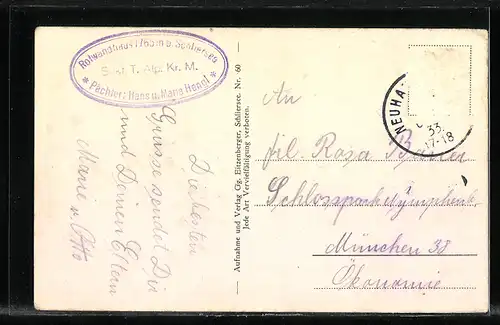 Rotwandhaus 1765 m b. Schliersee
S. T. Alp. Kr. M.
* Pächter: Hans u. Marie Hengl *
Die besten
Grüsse sendet Dir
und Deinen Eltern
Marie u. Otto
Aufnahme und Verlag Gg. Eitzenberger, Schliersee. Nr. 60
Jede Art Vervielfältigung verboten.
NEUHA
33.
17-18
An
frl. Rosa
Schlosspark Nymphenb.
München 38
Ökonomie